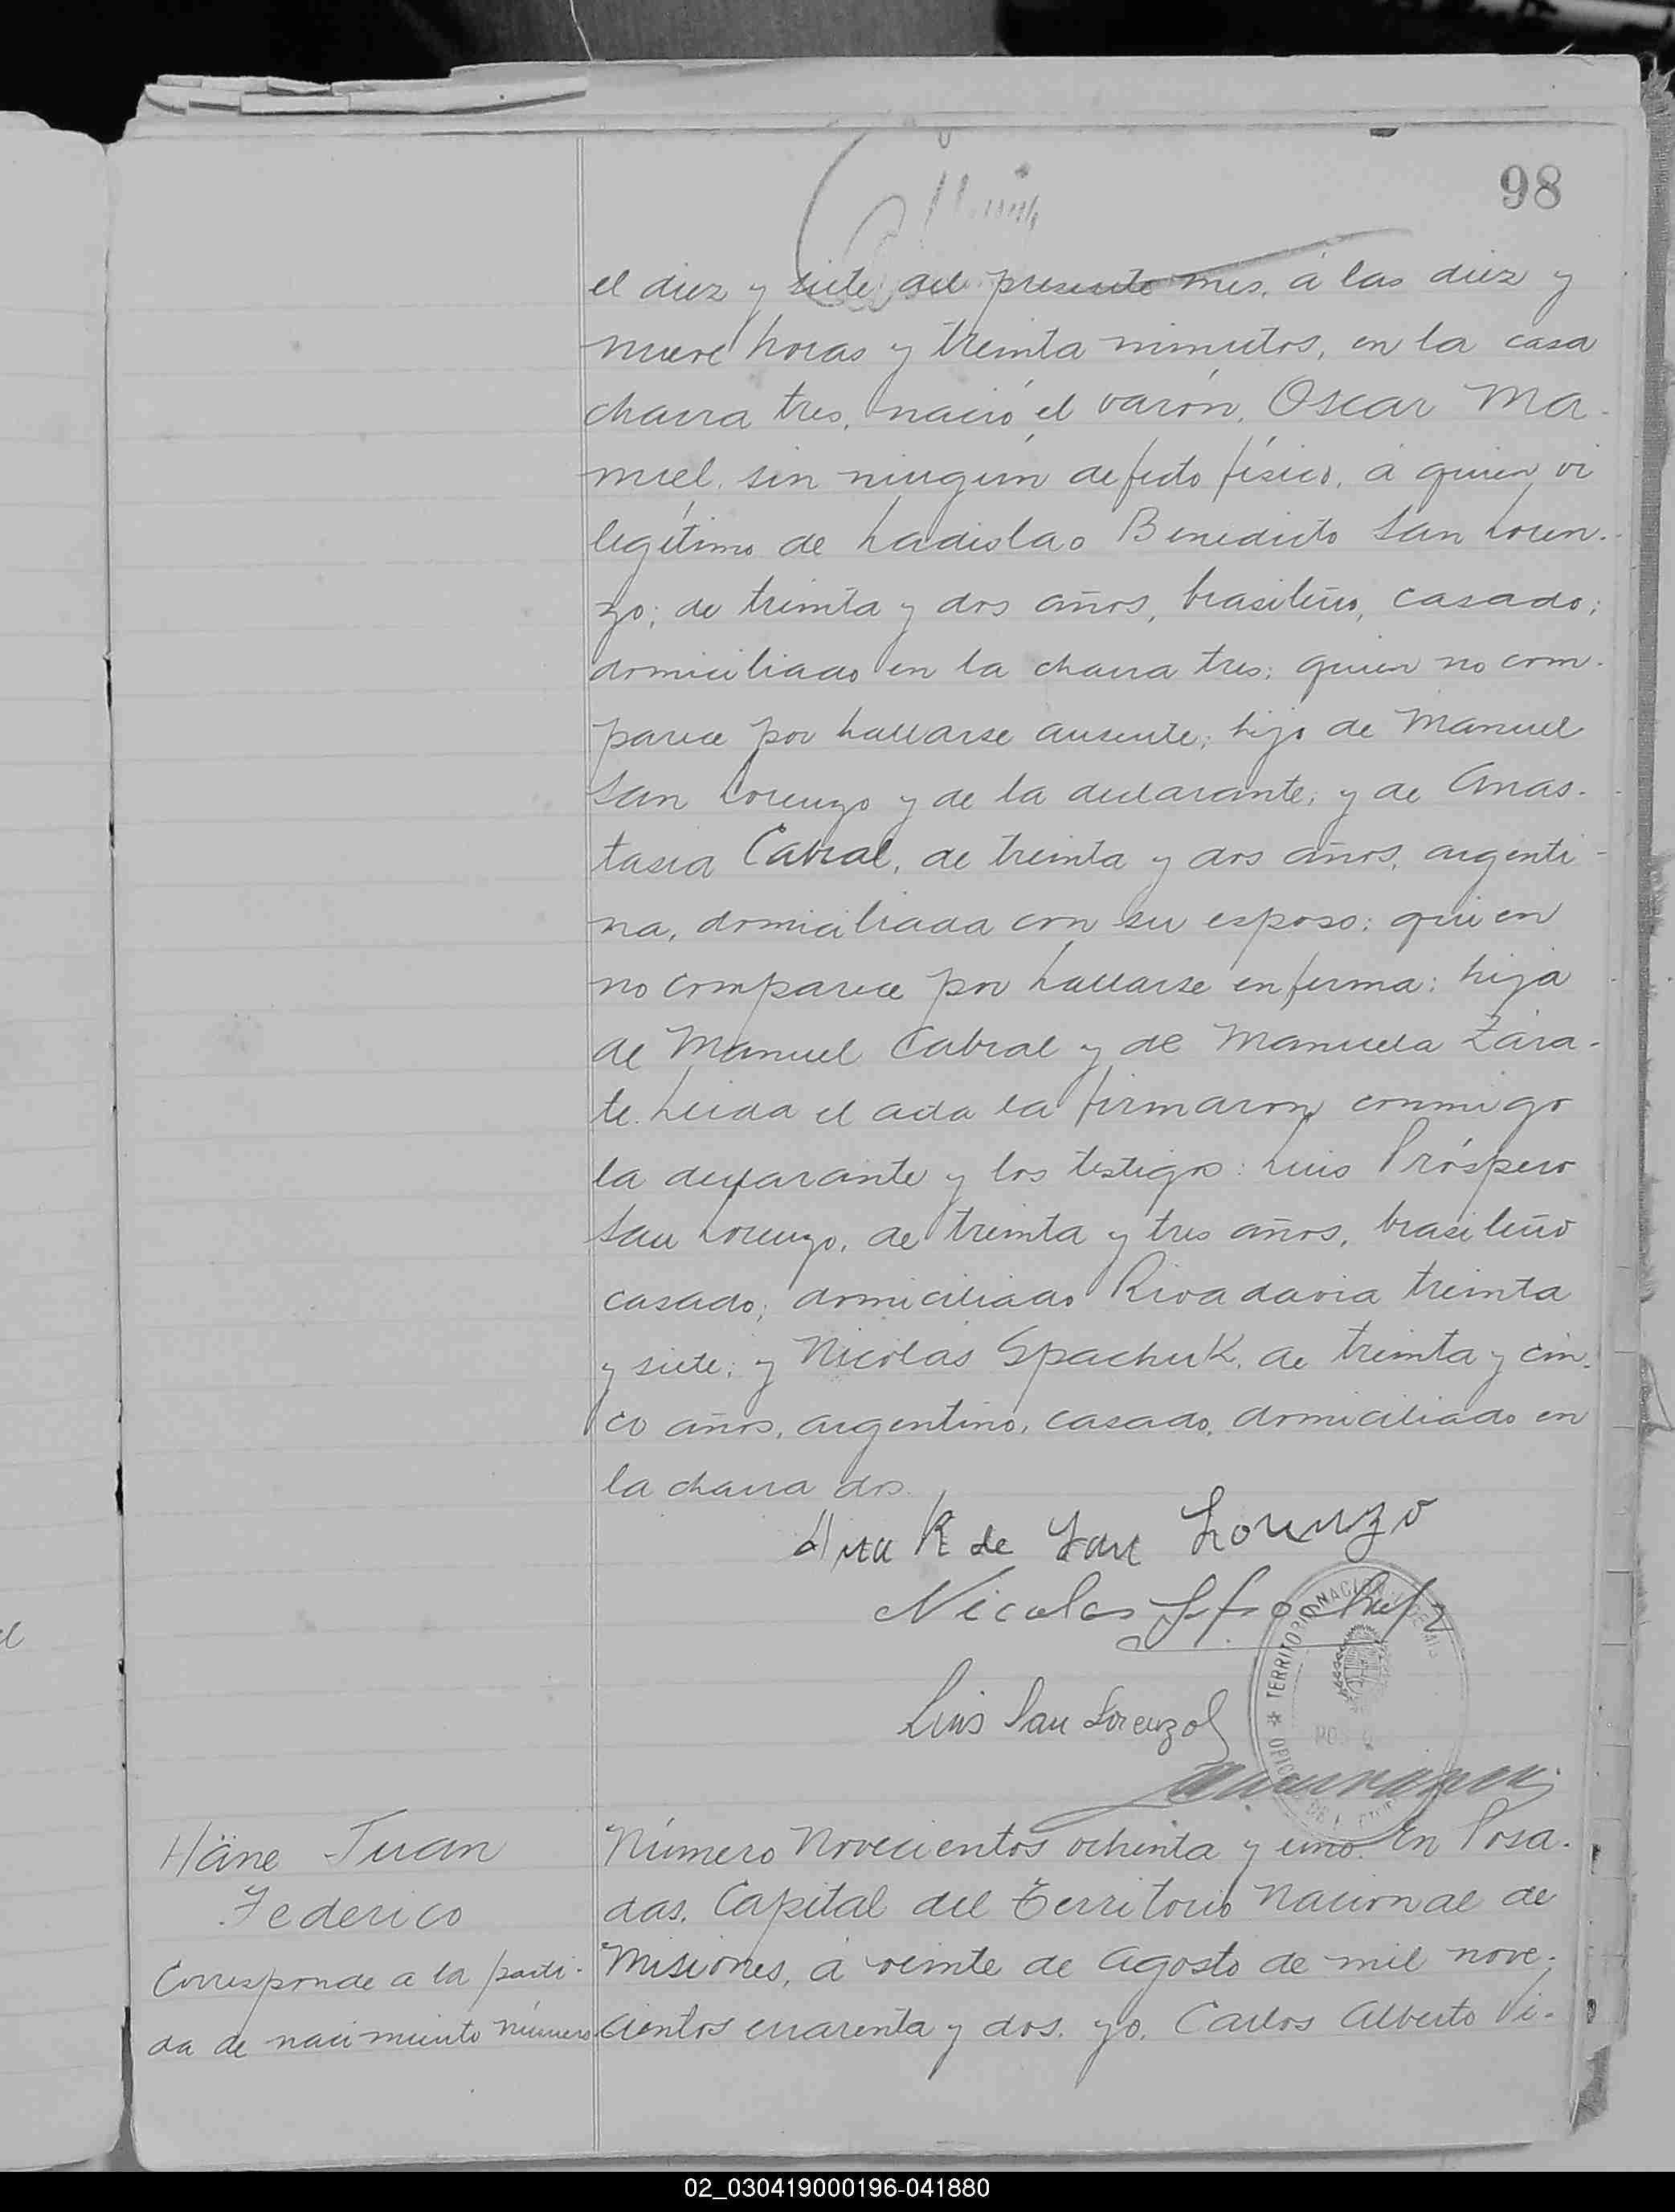 98
el diez y siete del presente mes, á las diez y
nueve horas y treinta minutos, en la casa
chacra tres, nació el varón, Oscar Ma-
nuel, sin ningún defecto físico, á quien vi
legítimo de Ladislao Benedicto San Loren-
zo; de treinta y dos años, brasileño, casado;
domiciliado en la chacra tres; quien no com-
parece por hallarse ausente; hijo de Manuel
San Lorenzo y de la declarante; y de Anas-
tasia Cabral, de treinta y dos años, argenti-
na, domiciliada con su esposo; quien
no comparece por hallarse enferma; hija
de Manuel Cabral y de Manuela Zára-
te. Leida el acta la firmaron conmigo
la declarante y los testigos: Luis Próspero
San Lorenzo, de treinta y tres años, brasileño
casado; domiciliado Rivadavia treinta
y siete; y Nicolás Spachuk, de treinta y cin-
co años, argentino, casado, domiciliado en
la chacra dos.
Ana R de San Lorenzo
Nicolas
Luis San Lorenzo
TERRITORIO NACIONAL DE MIS
Häne Juan
Federico
Corresponde a la parti-
da de nacimiento número
Número Novecientos ochenta y uno. En Posa-
das, Capital del Territorio Nacional de
Misiones, á veinte de Agosto de mil nove-
cientos cuarenta y dos. yo, Carlos Alberto Vi-
02_030419000196-041880